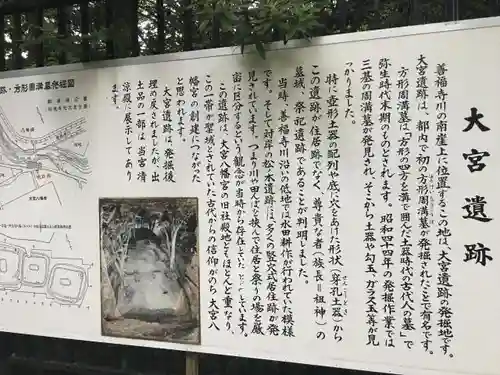 大宮遺跡
善福寺川の南崖上に位置するこの地は、大宮遺跡の発掘地です。
大宮遺跡は、都内で初の方形周溝墓が発掘されたことで有名です。
方形周溝墓は「方形の四方を溝で囲んだ土器時代の古代人の墓」で
弥生時代末期のものとされます。昭和四十四年の発掘作業では
三基の周溝墓が発見され、そこから土器や勾玉、ガラス玉等が見
つかりました。
特に壺形土器の配列や底に穴をあけた形状(穿孔土器)から
この遺跡が住居跡でなく、尊貴な者(族長=祖神)の
墓域、祭祀遺跡であることが判明しました。
当時、善福寺川沿いの低地では水田耕作が行われていた模様
です。そして対岸の松ノ木遺跡には、多くの竪穴式住居跡が発
見されています。つまり川や田んぼを挟んで住居と祭りの場を厳
宙に区分するという観念が当時から存在していたことを示しています。
この遺跡は、大宮八幡宮の旧社殿地とほとんど重なり、
この一帯が聖域とされていた古代からの信仰がのち大宮八
幡宮の創建につながった
と思われます。
大宮遺跡は、発掘後
埋め戻されましたが、出
土品の一部は当宮清
涼殿に展示してあり
ます。
方形周溝墓位置図